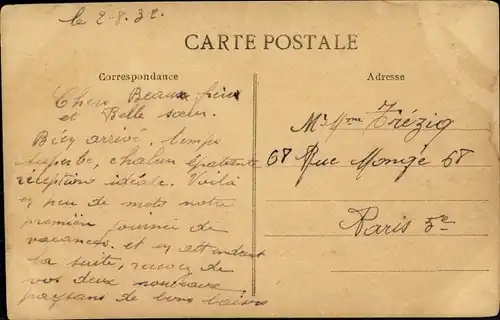 le 2-8.32
CARTE POSTALE
Correspondance
Cher Beaux frère
et Belle sœur.
Bien arrivé, temps
superbe, chaleur épatante
réception idéale. Voilà
en peu de mots notre
première journée de
vacances. et en attendant
la suite, recevez de
vos deux nouveaux
paysans de bons baisers
Adresse
Mr Mme Trézig
68 Rue Monge 68
Paris 5e